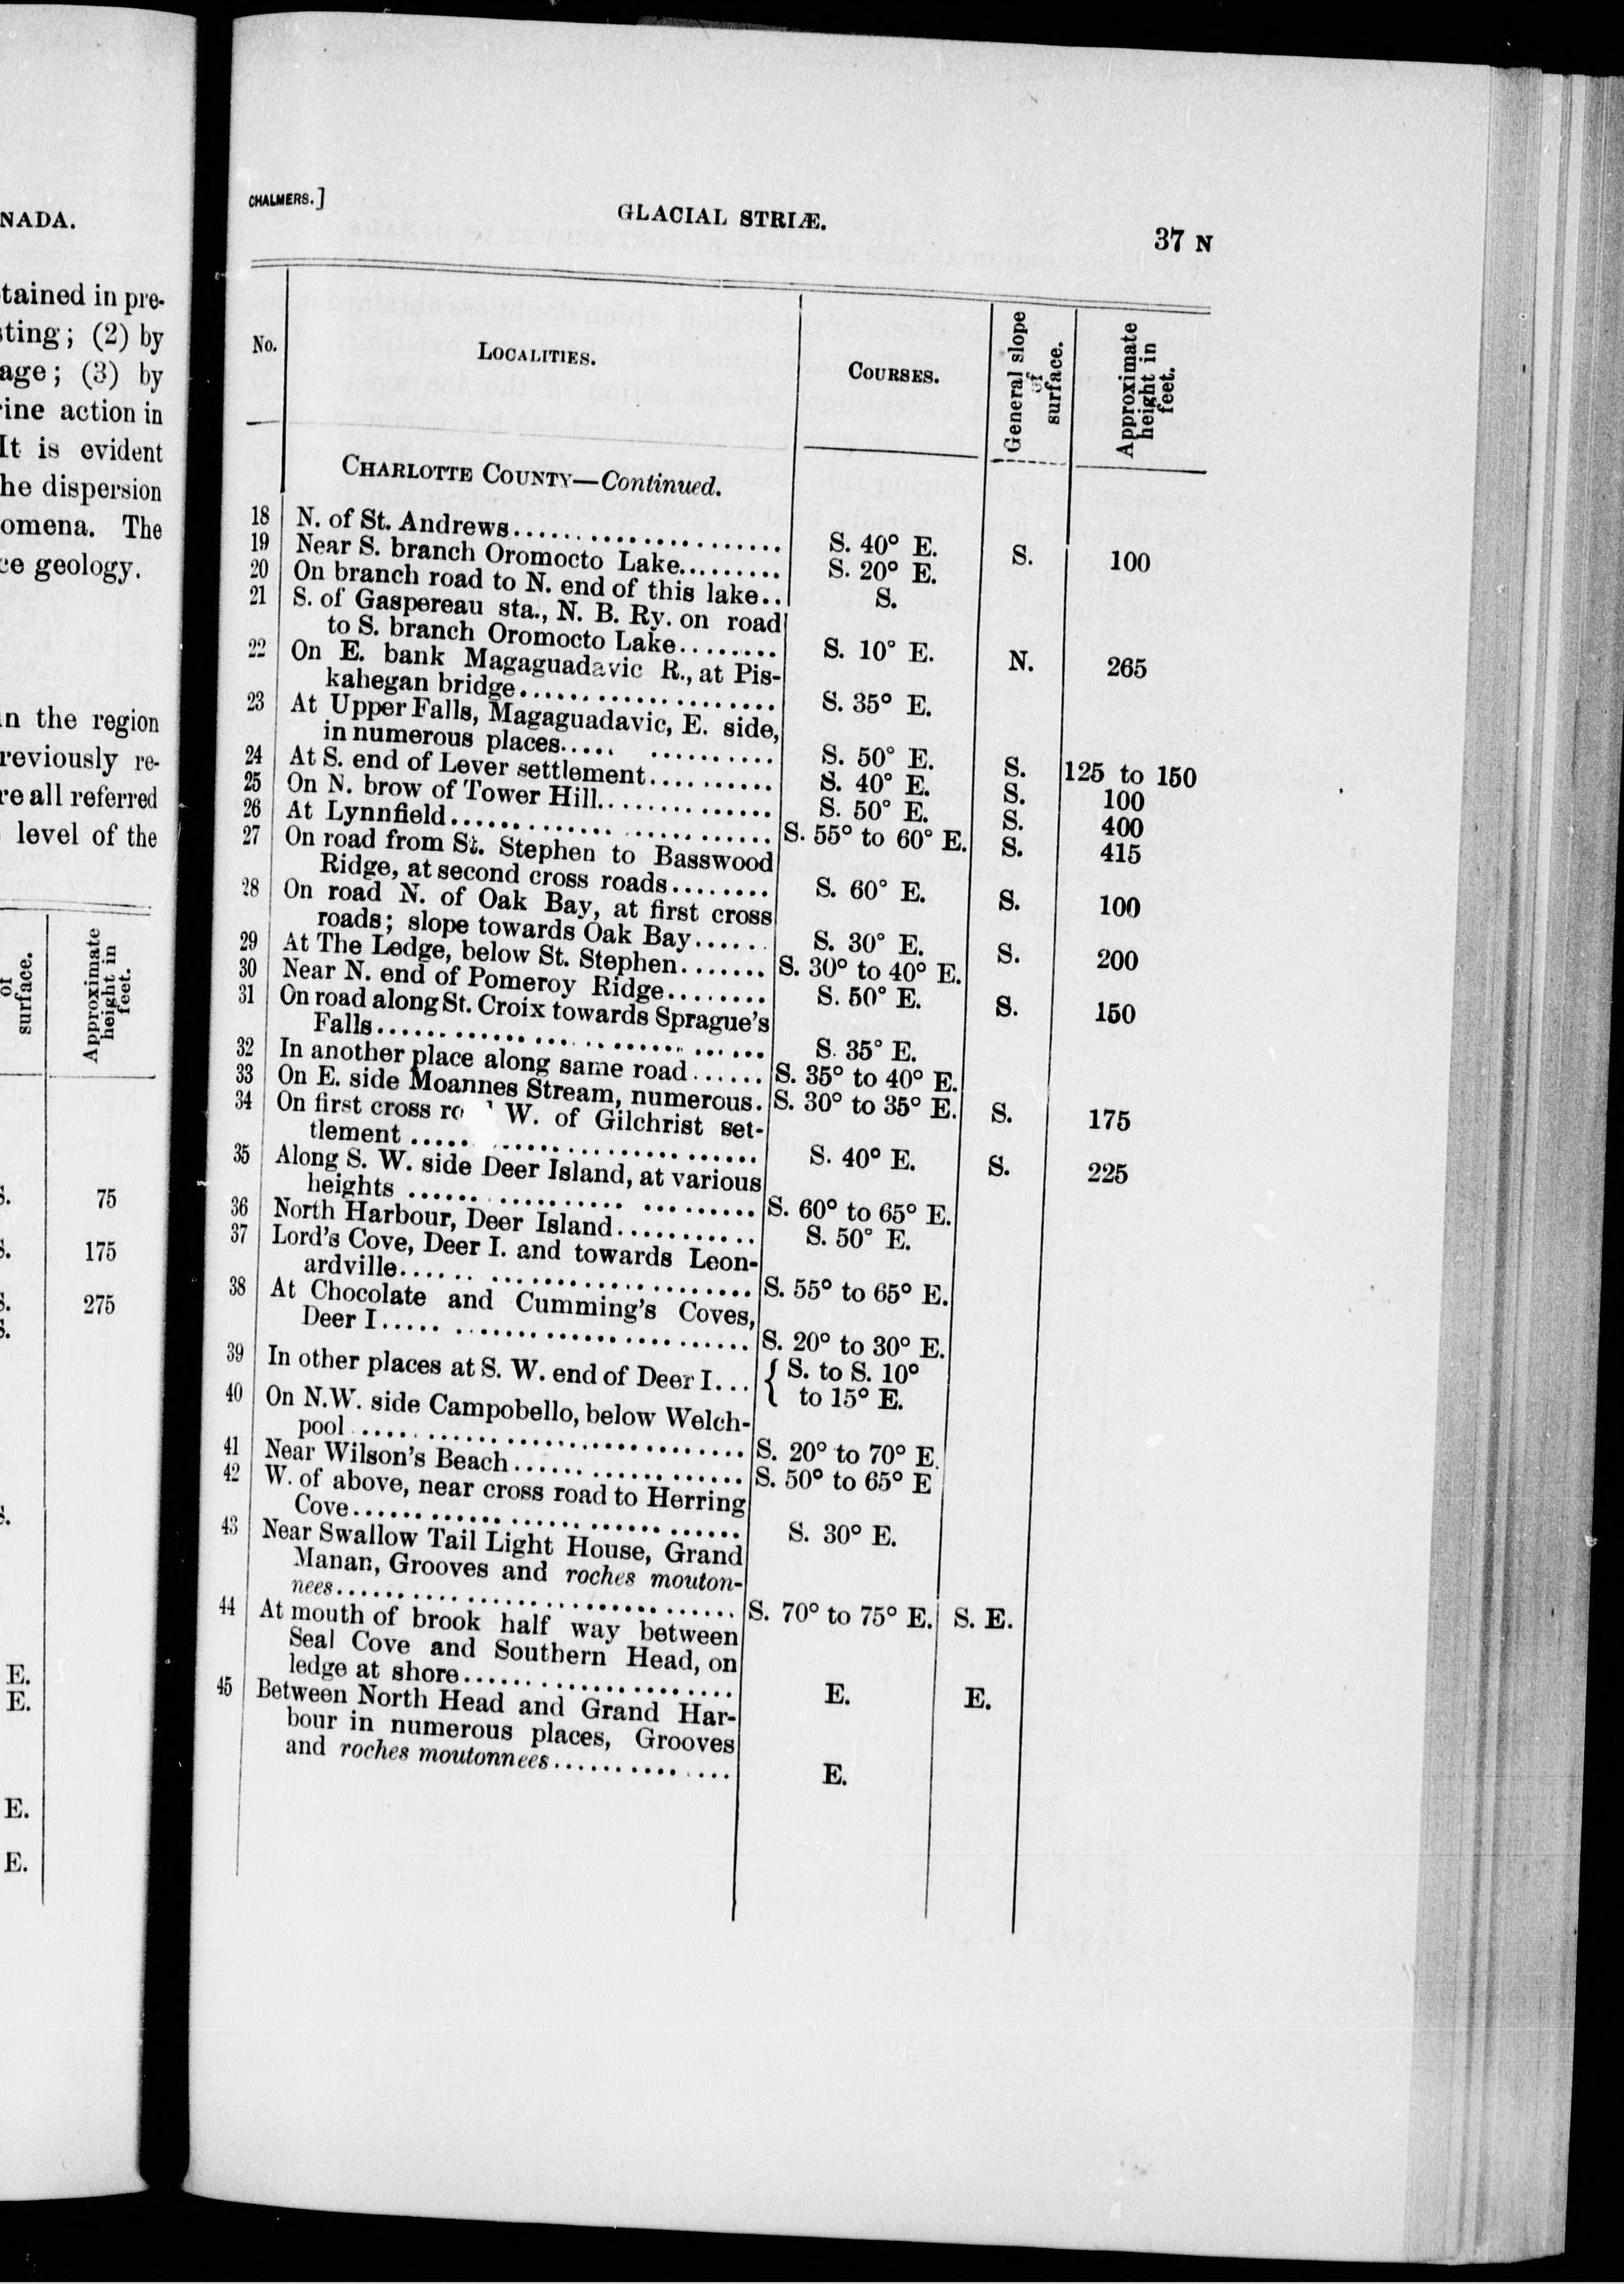 NADA.
tained in pre-
sting; (2) by
age; (3) by
rine action in
It is evident
he dispersion
omena. The
ce geology.
in the region
reviously re-
re all referred
level of the
of
surface.
Approximate
height in
feet.
S. 75
S. 175
S. 275
S.
S.
E.
E.
E.
E.
CHALMERS.] GLACIAL STRIÆ. 37 N
No. LOCALITIES. COURSES. General slope of surface. Approximate height in feet.
CHARLOTTE COUNTY—Continued.
18 N. of St. Andrews...................... S. 40° E. S. 100
19 Near S. branch Oromocto Lake......... S. 20° E.
20 On branch road to N. end of this lake.. S.
21 S. of Gaspereau sta., N. B. Ry. on road
to S. branch Oromocto Lake........ S. 10° E. N. 265
22 On E. bank Magaguadavic R., at Pis-
kahegan bridge..................... S. 35° E.
23 At Upper Falls, Magaguadavic, E. side,
in numerous places..... .......... S. 50° E. S. 125 to 150
24 At S. end of Lever settlement........... S. 40° E. S. 100
25 On N. brow of Tower Hill............... S. 50° E. S. 400
26 At Lynnfield........................... S. 55° to 60° E. S. 415
27 On road from St. Stephen to Basswood
Ridge, at second cross roads........ S. 60° E. S. 100
28 On road N. of Oak Bay, at first cross
roads; slope towards Oak Bay...... S. 30° E. S. 200
29 At The Ledge, below St. Stephen....... S. 30° to 40° E.
30 Near N. end of Pomeroy Ridge........ S. 50° E. S. 150
31 On road along St. Croix towards Sprague's
Falls............................... S. 35° E.
32 In another place along same road...... S. 35° to 40° E.
33 On E. side Moannes Stream, numerous. S. 30° to 35° E. S. 175
34 On first cross ro W. of Gilchrist set-
tlement ............................ S. 40° E. S. 225
35 Along S. W. side Deer Island, at various
heights ............................ S. 60° to 65° E.
36 North Harbour, Deer Island........... S. 50° E.
37 Lord's Cove, Deer I. and towards Leon-
ardville............................ S. 55° to 65° E.
38 At Chocolate and Cumming's Coves,
Deer I..... ........................ S. 20° to 30° E.
39 In other places at S. W. end of Deer I... { S. to S. 10°
to 15° E.
40 On N.W. side Campobello, below Welch-
pool ............................... S. 20° to 70° E.
41 Near Wilson's Beach................... S. 50° to 65° E
42 W. of above, near cross road to Herring
Cove............................... S. 30° E.
43 Near Swallow Tail Light House, Grand
Manan, Grooves and roches mouton-
nees................................ S. 70° to 75° E. S. E.
44 At mouth of brook half way between
Seal Cove and Southern Head, on
ledge at shore...................... E. E.
45 Between North Head and Grand Har-
bour in numerous places, Grooves
and roches moutonnees............... E.